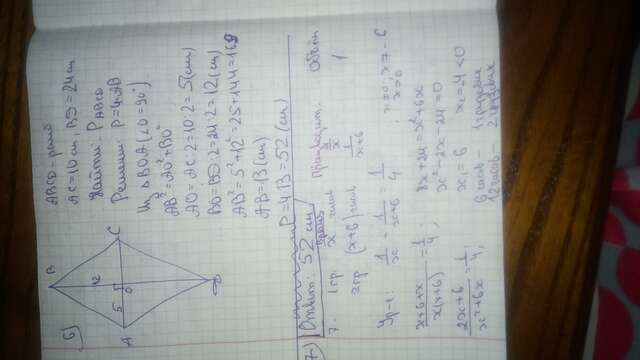 6)
B
A
C
D
O
5
12
ABCD - ромб
AC = 10 см, BD = 24 см
Найти: P ABCD
Решение: P = 4·AB
Из △BOA (∠O = 90°)
AB² = AO² + BO²
AO = AC : 2 = 10 : 2 = 5 (см)
BO = BD : 2 = 24 : 2 = 12 (см)
AB² = 5² + 12² = 25 + 144 = 169
AB = 13 (см)
P = 4·13 = 52 (см)
Ответ: 52 см
7)
7. время производит. Объём
1 гр. x часов 1/x 1
2 гр (x+6) часов 1/x+6
Ур-е: 1/x + 1/x+6 = 1/4 ; x≠0, x≠-6
x>0
x+6+x/x(x+6) = 1/4 ; 8x+24 = x²+6x
2x+6/x²+6x = 1/4 ; x²-2x-24=0
x₁=6 x₂=-4<0
6 часов - 1 грузовик
12 часов - 2 грузовик